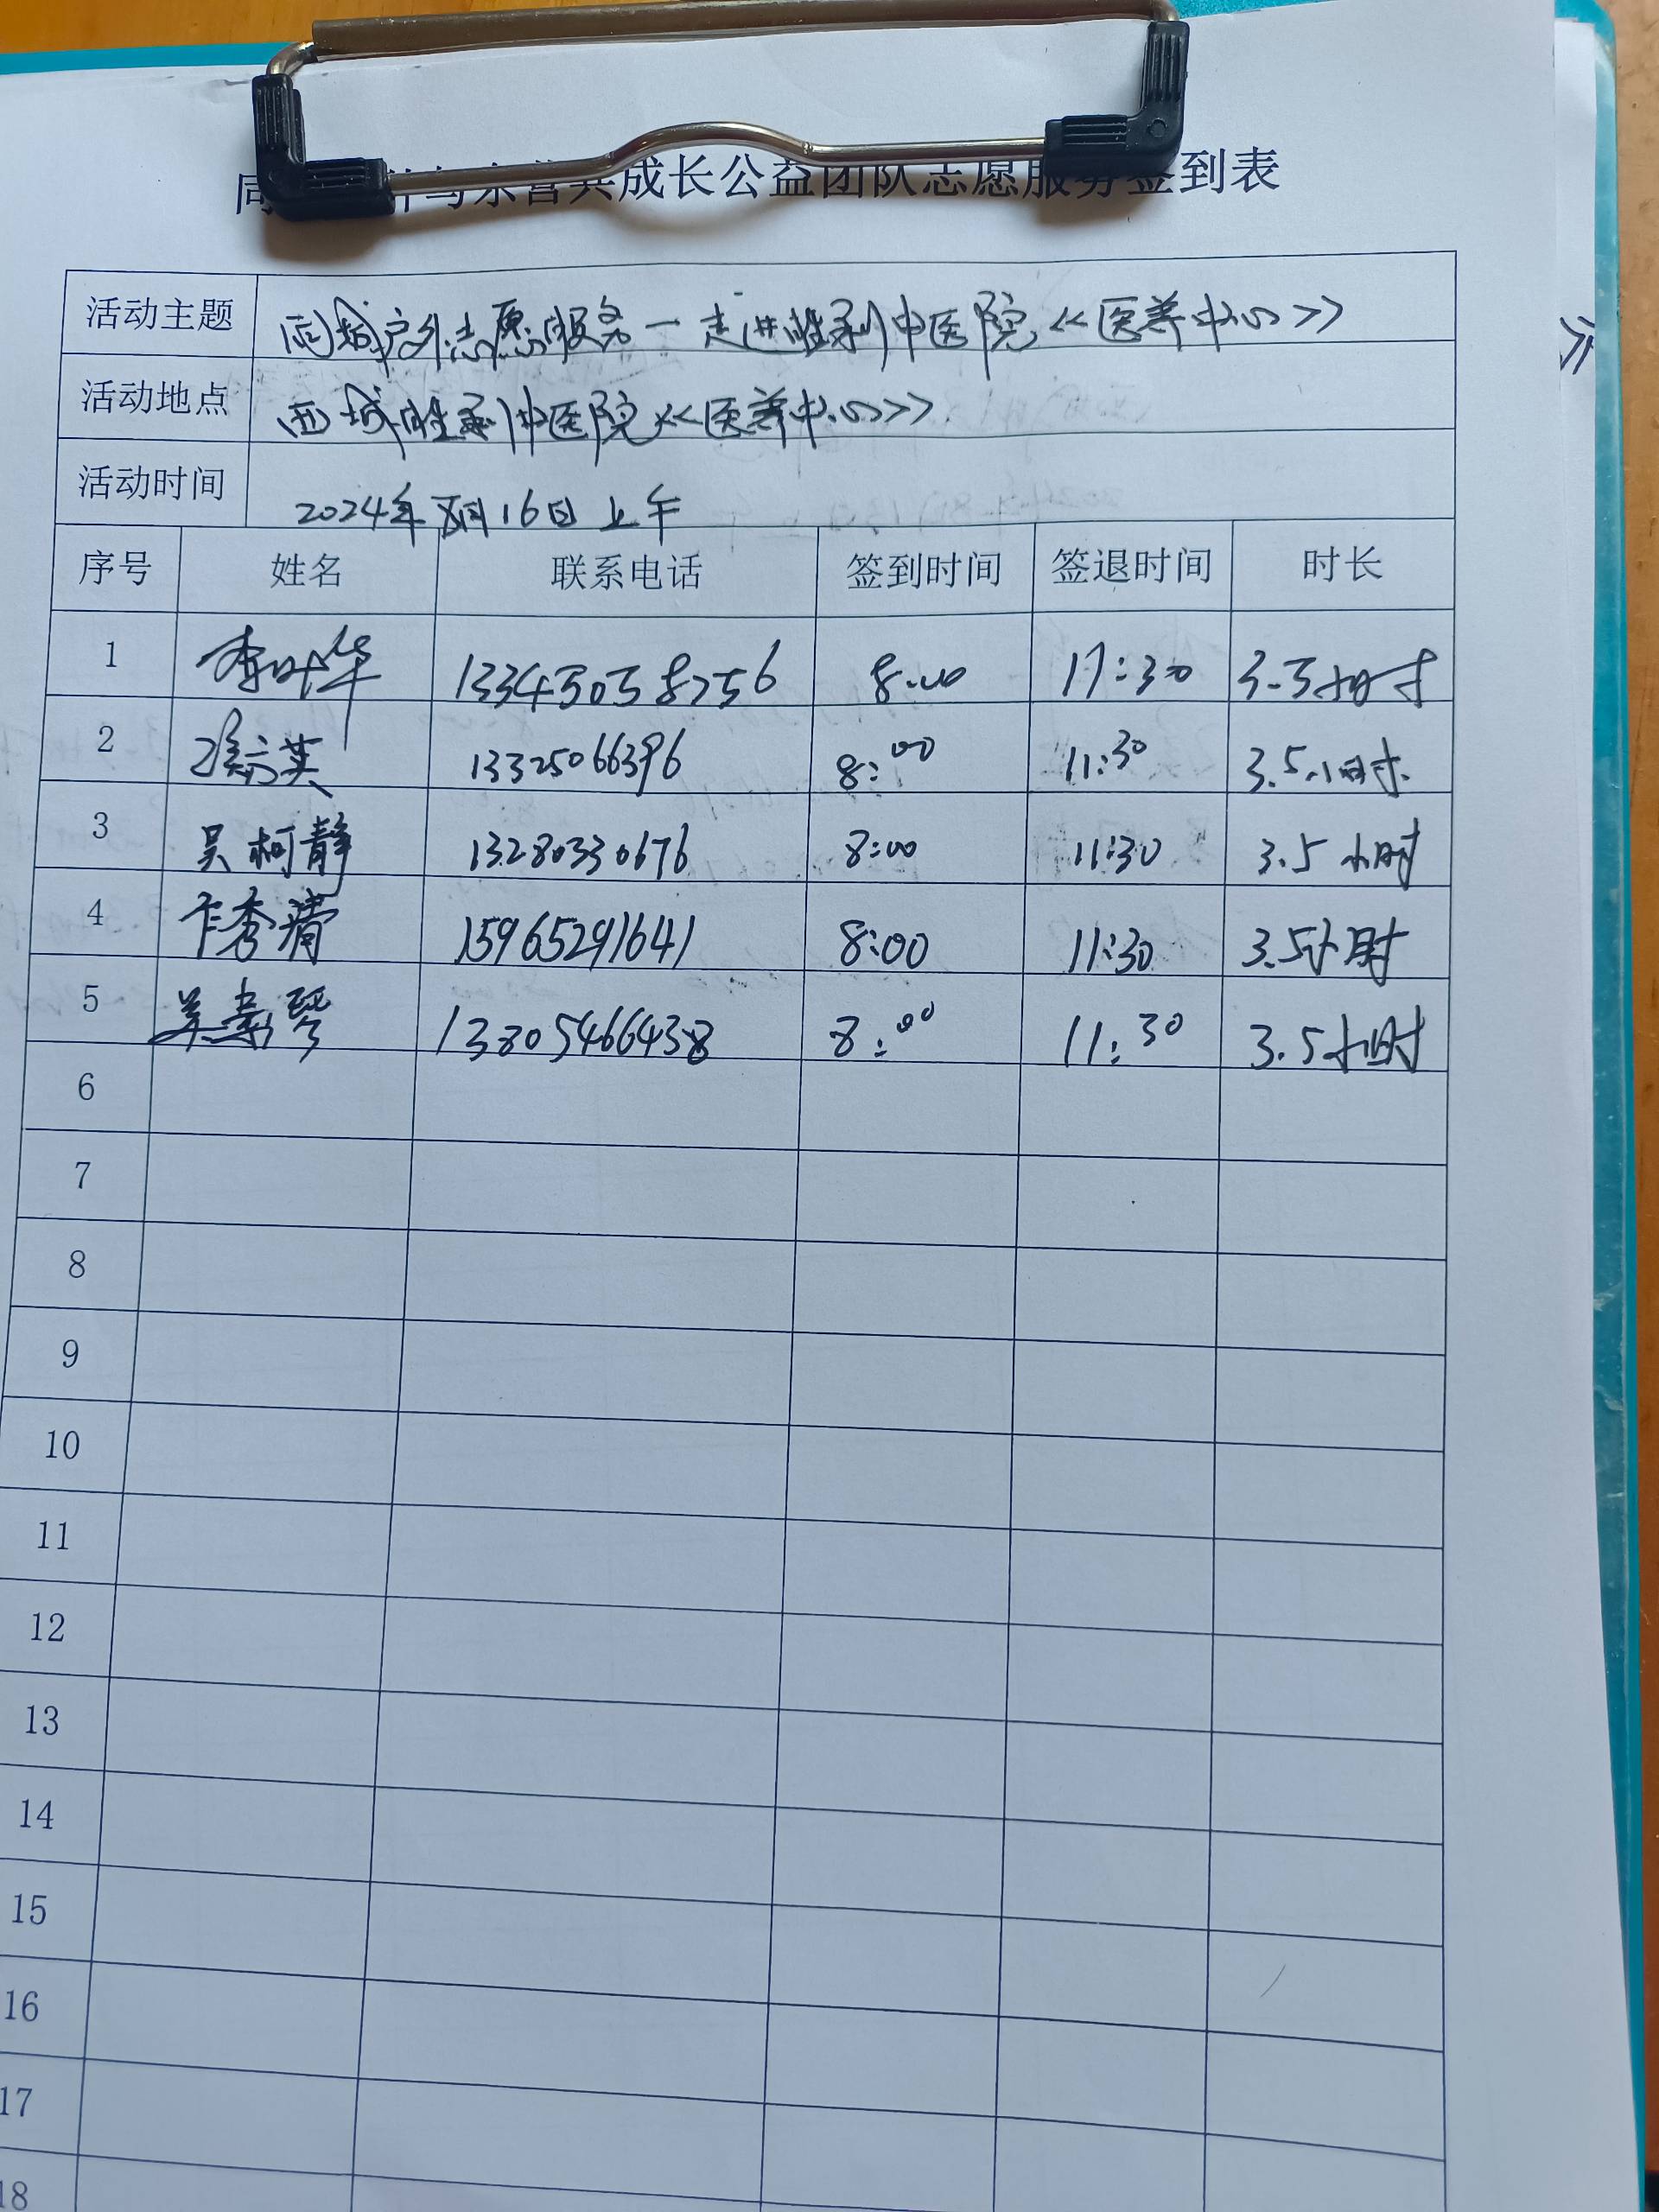 成长公益团队志愿服务签到表
活动主题 西城户外志愿服务一走进胜利中医院<<医养中心>>
活动地点 西城胜利中医院<<医养中心>>
活动时间 2024年8月16日上午
序号 姓名 联系电话 签到时间 签退时间 时长
1 李叶华 13345058756 8:00 11:30 3.5小时
2 英 13325066396 8:00 11:30 3.5小时
3 吴柯静 13280330676 8:00 11:30 3.5小时
4 卞秀清 15965291641 8:00 11:30 3.5小时
5 琴 13805466438 8:00 11:30 3.5小时
6
7
8
9
10
11
12
13
14
15
16
17
18